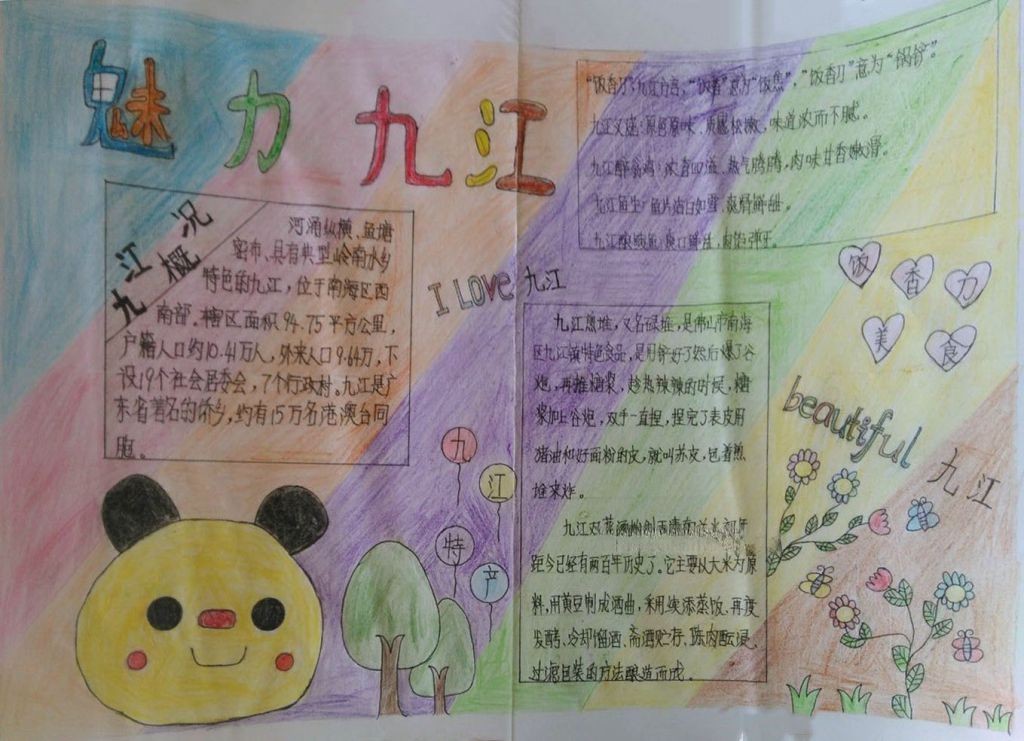 魅力九江
九江概况
河涌纵横、鱼塘
密布、具有典型岭南水乡
特色的九江，位于南海区西
南部．辖区面积94.75平方公里，
户籍人口约10.41万人，外来人口9.64万，下
设19个社会居委会，7个行政村。九江是广
东省著名的侨乡，约有15万名港澳台同
胞。
I LOVE 九江
"饭香刀"：九江方言，"饭香"意为"饭焦"，"饭香刀"意为"锅铲"。
味道浓而不腻。
热气腾腾，肉味甘香嫩滑。
九江鱼生：鱼片洁白如雪、爽骨鲜甜。
饭香力
美食
九江煎堆，又名碌堆，是佛山市南海
区九江镇特色食品，是用锌好了然后爆了谷
炮，再推糖浆、趁热辣辣的时候，糖
浆加上谷炮，双手一直捏，捏完了表皮用
猪油和好面粉的皮，就叫苏皮，包着煎
堆来炸。
距今已经有两百年历史了。它主要以大米为原
料，用黄豆制成酒曲，采用续添蒸饭、再度
发酵、冷却馏酒、斋酒贮存、陈肉酝浸、
过滤包装的方法酿造而成。
beautiful 九江
九江特产